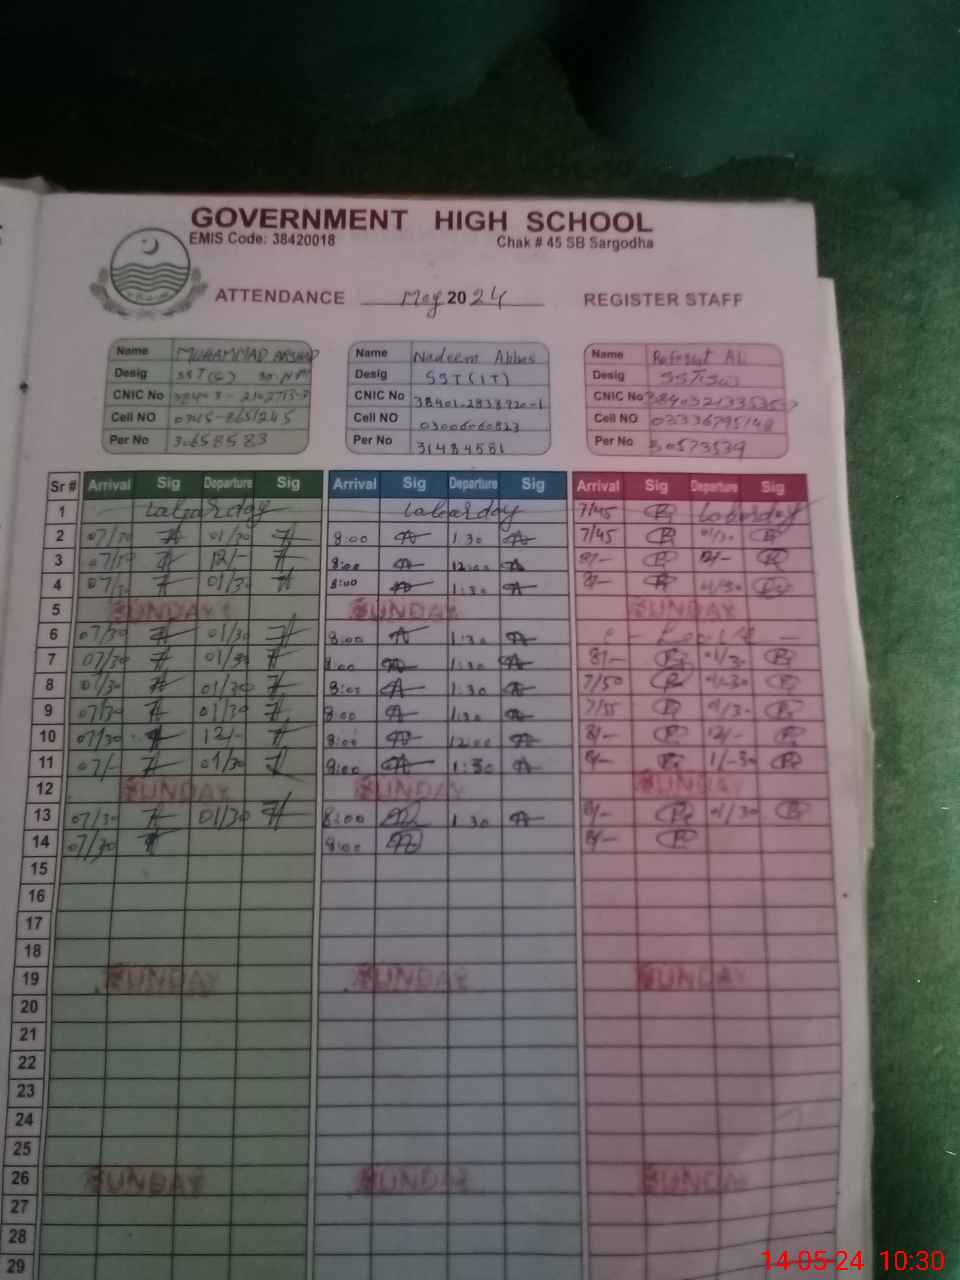 GOVERNMENT HIGH SCHOOL
EMIS Code: 38420018 Chak # 45 SB Sargodha
ATTENDANCE May 2024 REGISTER STAFF
Name MUHAMMAD ARSHAD Name Nadeem Abbas Name Ali
Desig SST Desig SST(IT) Desig
CNIC No CNIC No 38401-2838920-1 CNIC No
Cell NO Cell NO 03006060823 Cell NO
Per No 30658583 Per No 31484581 Per No 30573539
Sr # Arrival Sig Departure Sig Arrival Sig Departure Sig Arrival Sig Departure Sig
1 Labarday Labarday 7/45 Labarday
2 07/30 01/30 8:00 1:30 7/45 01/30
3 12/- 8:00 12:00 8/- 12/-
4 07/30 01/30 8:00 1:30 8/- 01/30
5 SUNDAY SUNDAY SUNDAY
6 07/30 01/30 8:00 1:30 Leave
7 07/30 01/30 8:00 1:30 8/- 01/30
8 01/30 01/30 8:00 1:30 7/50 01-30
9 07/30 01/30 8:00 1:30 7/55 01/30
10 07/30 12/- 8:00 12:00 8/- 12/-
11 07/- 01/30 8:00 1:30 8/- 1/-30
12 SUNDAY SUNDAY SUNDAY
13 07/30 01/30 8:00 1:30 8/- 01/30
14 07/30 8:00 8/-
15
16
17
18
19 SUNDAY SUNDAY SUNDAY
20
21
22
23
24
25
26 SUNDAY SUNDAY SUNDAY
27
28
29
14-05-24 10:30